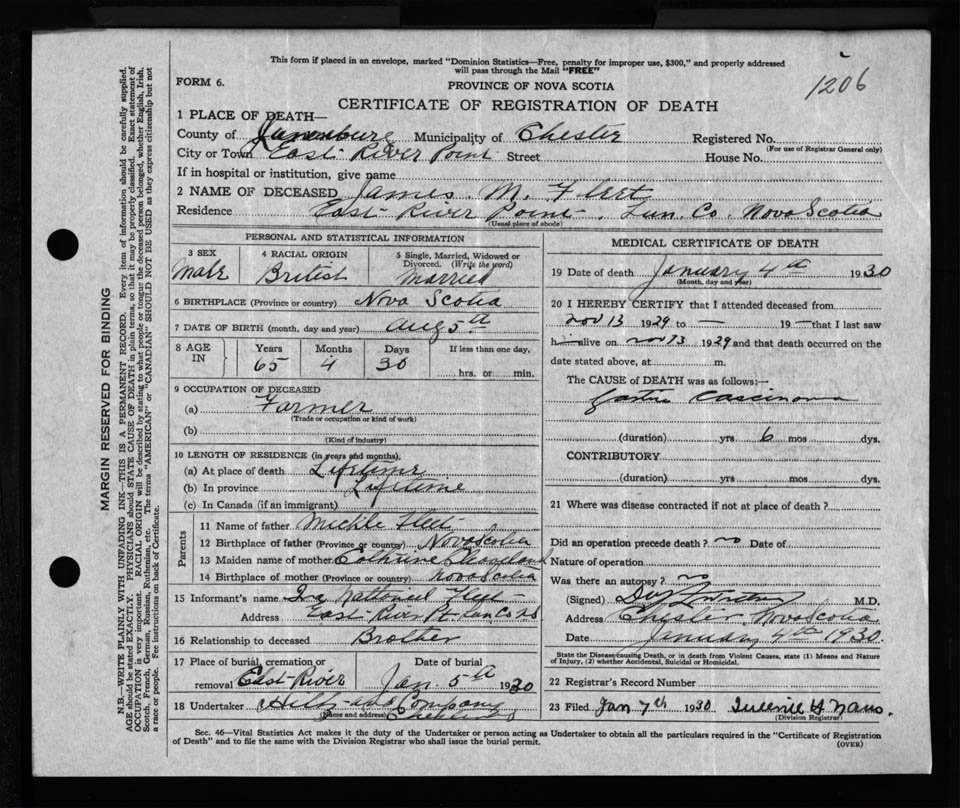 This form if placed in an envelope, marked "Dominion Statistics—Free, penalty for improper use, $300," and properly addressed
will pass through the Mail "FREE"
1206
FORM 6.
PROVINCE OF NOVA SCOTIA
CERTIFICATE OF REGISTRATION OF DEATH
1 PLACE OF DEATH—
County of Lunenburg Municipality of Chester Registered No.
(For use of Registrar General only)
City or Town East River Point Street House No.
If in hospital or institution, give name
2 NAME OF DECEASED James M. Fleet
Residence East River Point, Lun. Co. Nova Scotia
(Usual place of abode)
PERSONAL AND STATISTICAL INFORMATION
3 SEX Male
4 RACIAL ORIGIN British
5 Single, Married, Widowed or
Divorced. (Write the word) Married
6 BIRTHPLACE (Province or country) Nova Scotia
7 DATE OF BIRTH (month, day and year) Aug 5th
8 AGE IN Years Months Days If less than one day,
65 4 30 hrs. or min.
9 OCCUPATION OF DECEASED
(a) Farmer
(Trade or occupation or kind of work)
(b)
(Kind of industry)
10 LENGTH OF RESIDENCE (in years and months).
(a) At place of death Lifetime
(b) In province Lifetime
(c) In Canada (if an immigrant)
Parents
11 Name of father Fleet
12 Birthplace of father (Province or country) Nova Scotia
13 Maiden name of mother
14 Birthplace of mother (Province or country) Nova Scotia
15 Informant's name Fleet
Address East River Pt Lun Co NS
16 Relationship to deceased Brother
17 Place of burial, cremation or Date of burial
removal East River Jan. 5th 1930
18 Undertaker and Company
(Name and address) Chester NS
MEDICAL CERTIFICATE OF DEATH
19 Date of death January 4th 1930
(Month, day and year)
20 I HEREBY CERTIFY that I attended deceased from
Nov 13 1929 to — 19 — that I last saw
h im alive on Nov 13 1929 and that death occurred on the
date stated above, at m.
The CAUSE of DEATH was as follows:—
Gastric Carcinoma
(duration) yrs 6 mos dys.
CONTRIBUTORY
(duration) yrs. mos. dys.
21 Where was disease contracted if not at place of death?
Did an operation precede death? no Date of
Nature of operation
Was there an autopsy? no
(Signed) M.D.
Address Chester Nova Scotia
Date January 4th 1930.
State the Disease causing Death, or in death from Violent Causes, state (1) Means and Nature
of Injury, (2) whether Accidental, Suicidal or Homicidal.
22 Registrar's Record Number
23 Filed Jan 7th 1930
(Division Registrar)
Sec. 46—Vital Statistics Act makes it the duty of the Undertaker or person acting as Undertaker to obtain all the particulars required in the "Certificate of Registration
of Death" and to file the same with the Division Registrar who shall issue the burial permit.
(OVER)
MARGIN RESERVED FOR BINDING
N.B.—WRITE PLAINLY WITH UNFADING INK—THIS IS A PERMANENT RECORD. Every item of information should be carefully supplied.
AGE should be stated EXACTLY. PHYSICIANS should STATE CAUSE OF DEATH in plain terms, so that it may be properly classified. Exact statement of
OCCUPATION is very important. RACIAL ORIGIN will be described by stating to what people or tongue the deceased person belonged, whether English, Irish,
Scotch, French, German, Russian, Ruthenian, etc. The terms "AMERICAN" or "CANADIAN" SHOULD NOT BE USED as they express citizenship but not
a race or people. See instructions on back of Certificate.